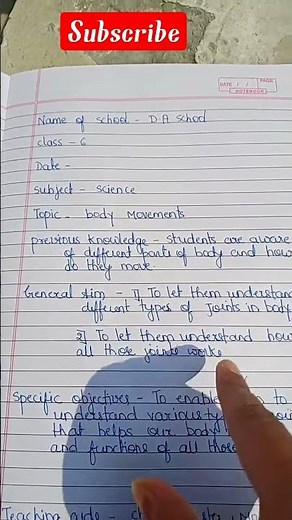 Subscribe
DATE / /
PAGE
NOTEBOOK
Name of school - D.A School
class - 6
Date -
Subject - Science
Topic - body Movements
previous knowledge - Students are aware
of different parts of body and how
do they move.
General aim - 1) To let them understand
different types of joints in body
2) To let them understand how
all those joints works
Specific objectives - To enable to
understand various
that helps our body
and functions of all those
Teaching aids -